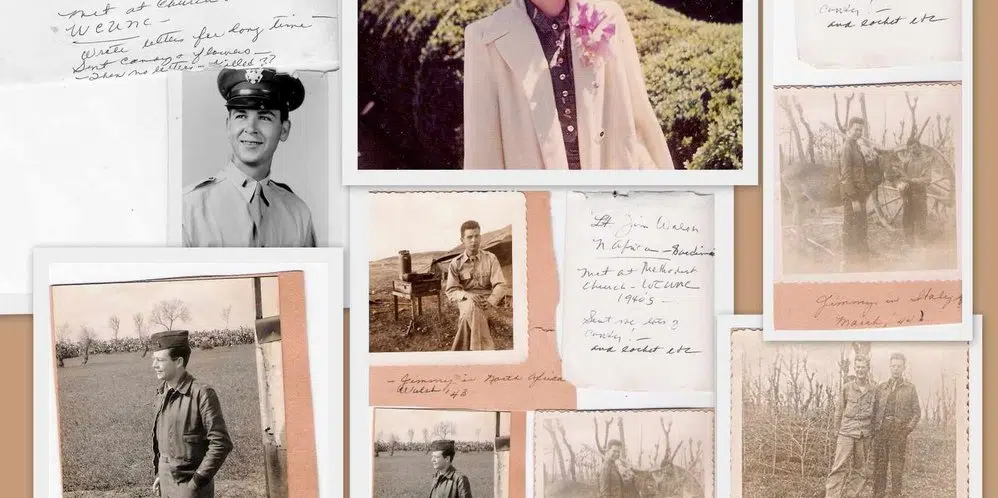 met at Church
WCUNC -
Wrote letters for long time -
Sent candy & flowers -
- Then no letters - killed ??
candy! -
and locket etc
Lt Jim Walsh
N Africa -
met at Methodist
Church - WCUNC
1940s -
Sent me lots of
candy! -
and locket etc
- Jimmy in North Africa
'43
Jimmy in Italy
March,